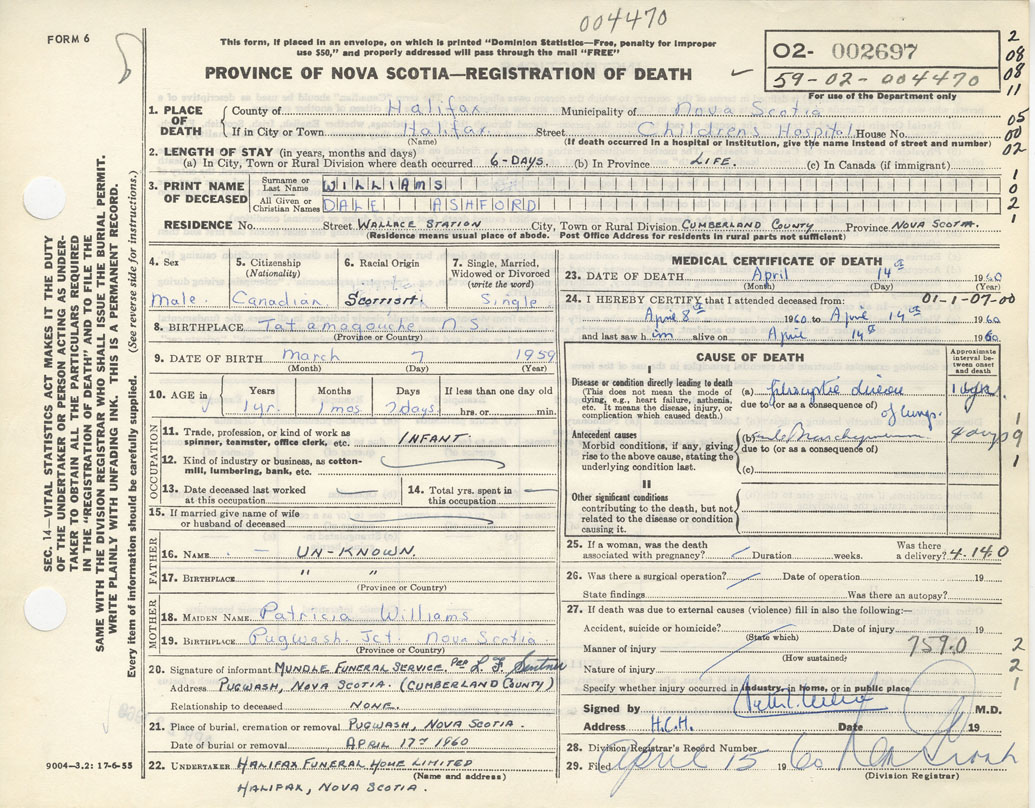 004470
FORM 6
This form, if placed in an envelope, on which is printed "Dominion Statistics—Free, penalty for improper
use $50," and properly addressed will pass through the mail "FREE"
PROVINCE OF NOVA SCOTIA—REGISTRATION OF DEATH
02- 002697
59-02-004470
For use of the Department only
2
08
08
11
05
00
02
1
0
2
1
SEC. 14—VITAL STATISTICS ACT MAKES IT THE DUTY
OF THE UNDERTAKER OR PERSON ACTING AS UNDER-
TAKER TO OBTAIN ALL THE PARTICULARS REQUIRED
IN THE "REGISTRATION OF DEATH" AND TO FILE THE
SAME WITH THE DIVISION REGISTRAR WHO SHALL ISSUE THE BURIAL PERMIT.
WRITE PLAINLY WITH UNFADING INK. THIS IS A PERMANENT RECORD.
Every item of information should be carefully supplied. (See reverse side for instructions.)
1. PLACE OF DEATH
County of Halifax Municipality of Nova Scotia
If in City or Town Halifax Street Childrens Hospital House No.
(Name) (If death occurred in a hospital or institution, give the name instead of street and number)
2. LENGTH OF STAY (in years, months and days)
(a) In City, Town or Rural Division where death occurred 6-DAYS. (b) In Province LIFE. (c) In Canada (if immigrant)
3. PRINT NAME OF DECEASED
Surname or Last Name WILLIAMS
All Given or Christian Names DALE ASHFORD
RESIDENCE No. Street WALLACE STATION City, Town or Rural Division CUMBERLAND COUNTY Province NOVA SCOTIA.
(Residence means usual place of abode. Post Office Address for residents in rural parts not sufficient)
4. Sex
Male.
5. Citizenship
(Nationality)
Canadian
6. Racial Origin
SCOTTISH
7. Single, Married,
Widowed or Divorced
(write the word)
Single
8. BIRTHPLACE Tatamagouche N S
(Province or Country)
9. DATE OF BIRTH March 7 1959
(Month) (Day) (Year)
10. AGE in
Years Months Days If less than one day old
1 yr. 1 mos. 7 days. hrs. or min.
OCCUPATION
11. Trade, profession, or kind of work as
spinner, teamster, office clerk, etc. INFANT
12. Kind of industry or business, as cotton-
mill, lumbering, bank, etc.
13. Date deceased last worked
at this occupation
14. Total yrs. spent in
this occupation
15. If married give name of wife
or husband of deceased
FATHER
16. NAME UN-KNOWN
17. BIRTHPLACE " "
(Province or Country)
MOTHER
18. MAIDEN NAME Patricia Williams
19. BIRTHPLACE Pugwash Jct. Nova Scotia
(Province or Country)
20. Signature of informant MUNDLE FUNERAL SERVICE. Per L. F.
Address PUGWASH, NOVA SCOTIA. (CUMBERLAND COUNTY)
Relationship to deceased NONE.
21. Place of burial, cremation or removal PUGWASH, NOVA SCOTIA.
Date of burial or removal APRIL 17 1960
22. UNDERTAKER HALIFAX FUNERAL HOME LIMITED
(Name and address)
HALIFAX, NOVA SCOTIA.
9004-3.2: 17-6-55
MEDICAL CERTIFICATE OF DEATH
23. DATE OF DEATH April 14th 1960
(Month) (Day) (Year)
24. I HEREBY CERTIFY that I attended deceased from: 01-1-07-00
April 8th 1960 to April 14th 1960
and last saw him alive on April 14th 1960
CAUSE OF DEATH
Approximate
interval be-
tween onset
and death
I
Disease or condition directly leading to death
(This does not mean the mode of
dying, e.g., heart failure, asthenia,
etc. It means the disease, injury, or
complication which caused death.)
(a)
due to (or as a consequence of) of lungs.
Antecedent causes
Morbid conditions, if any, giving
rise to the above cause, stating the
underlying condition last.
(b) 4 days
due to (or as a consequence of)
(c)
1
9
1
II
Other significant conditions
contributing to the death, but not
related to the disease or condition
causing it.
25. If a woman, was the death
associated with pregnancy? Duration weeks. Was there
a delivery? 4.140
26. Was there a surgical operation? Date of operation 19
State findings Was there an autopsy?
27. If death was due to external causes (violence) fill in also the following:—
Accident, suicide or homicide? Date of injury 19
(State which)
Manner of injury 759.0 2
(How sustained)
Nature of injury 2
Specify whether injury occurred in industry, in home, or in public place 1
Signed by M.D.
Address H.C.H. Date 19
28. Division Registrar's Record Number
29. Filed April 15 1960
(Division Registrar)